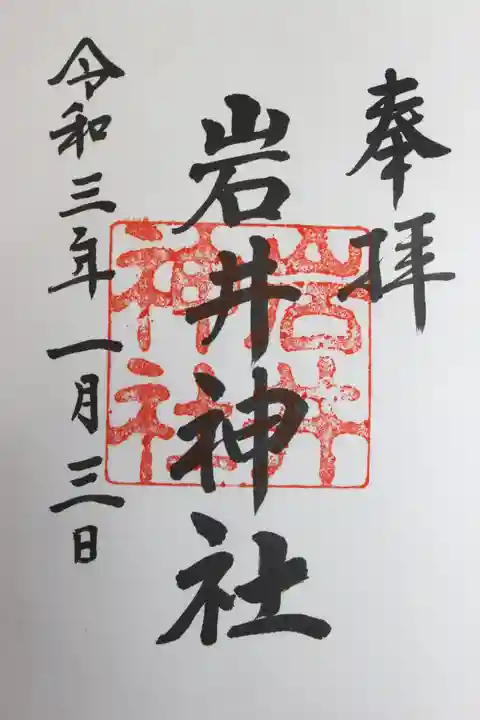 奉拝
岩井神社
岩井
神社
令和三年一月三日